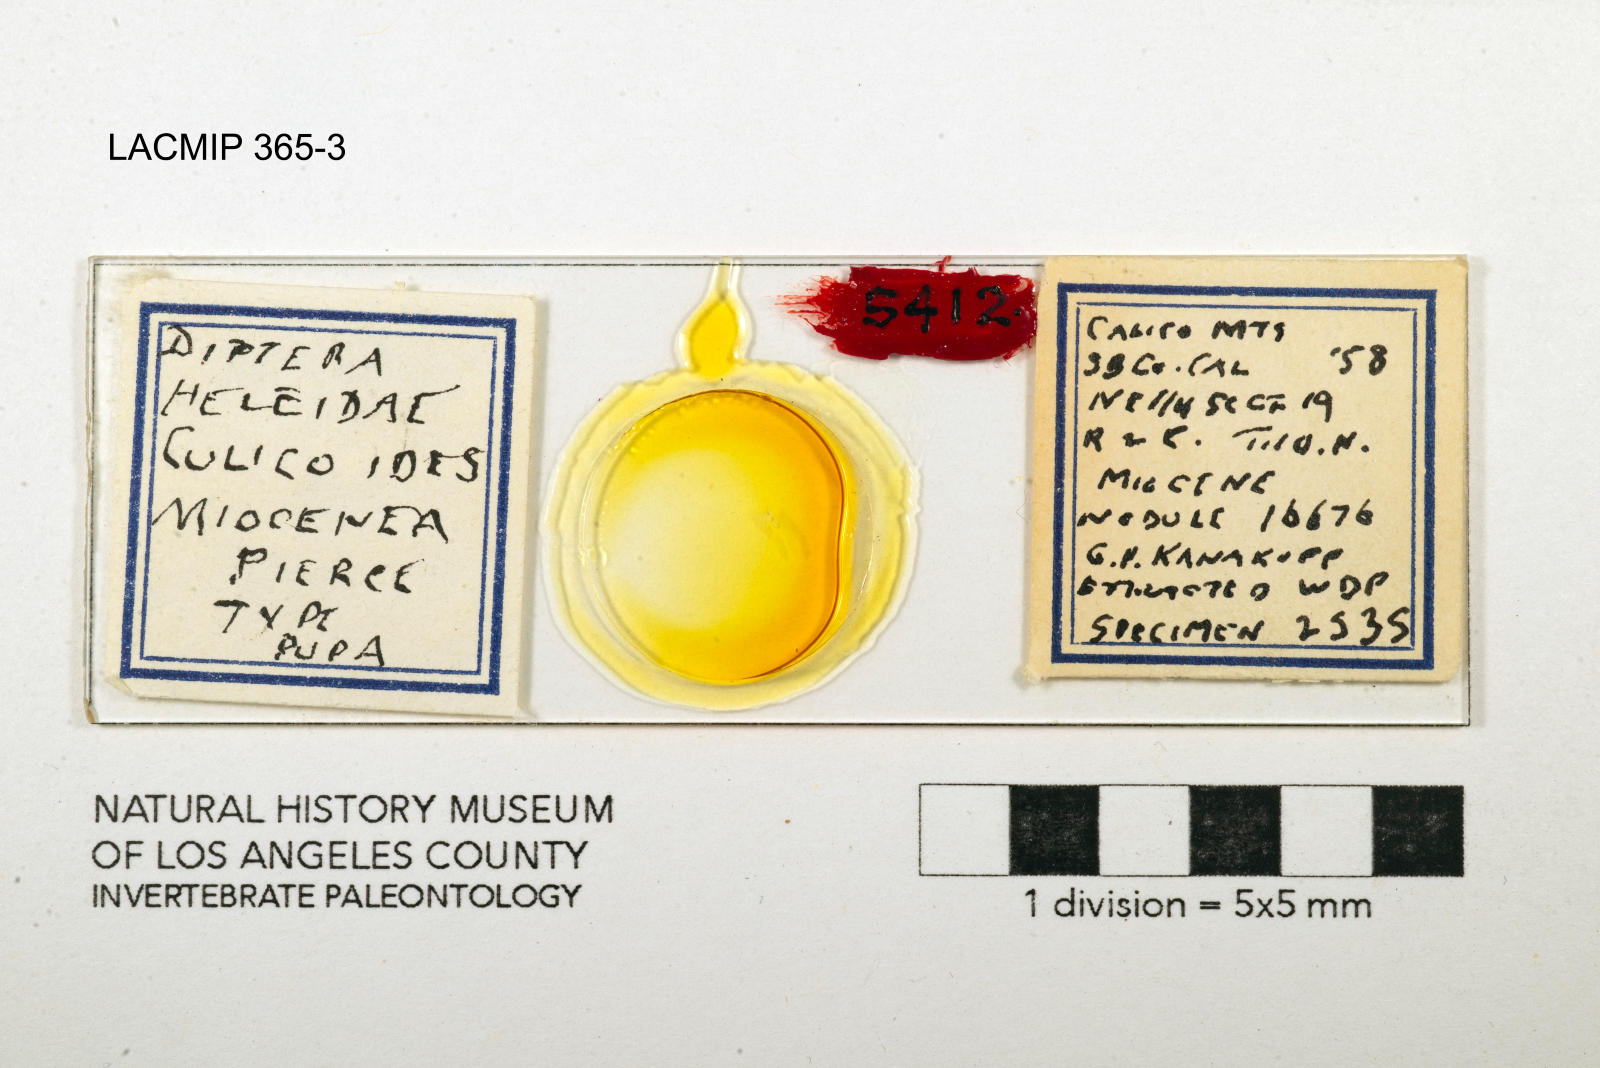 LACMIP 365-3
DIPTERA
HELEIDAE
CULICOIDES
MIOCENEA
PIERCE
TYPE
PUPA
5412.
CALICO MTS
SB Co. CAL '58
NE 1/4 SECT 19
R 2 E. T.10.N.
MIOCENE
NODULE 16676
G.P. KANAKOFF
EXTRACTED WDP
SPECIMEN 2535
NATURAL HISTORY MUSEUM
OF LOS ANGELES COUNTY
INVERTEBRATE PALEONTOLOGY
1 division = 5x5 mm